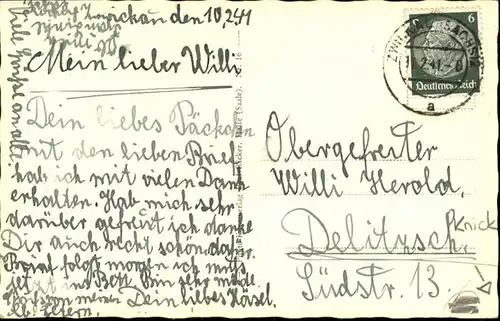 Zwickau den 10.2.41
Mein lieber Willi
Dein liebes Päckchen
mit den lieben Brief
hab ich mit vielen Dank
erhalten. Hab mich sehr
darüber gefreut ich danke
Dir auch recht schön dafür.
Brief folgt morgen ich muß
jetzt ins Bett. Bin sehr müde
Dein liebes Häsel.
Viele Grüße an alle
6
Deutsches Reich
ZWICKAU (SACHS)
2.41
a
(Saale)
Obergefreiter
Willi Herold
Delitzsch
Südstr. 13
Knick